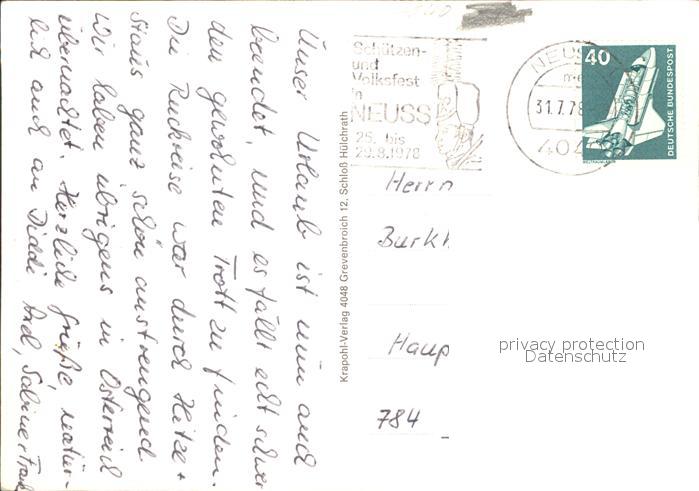 Unser Urlaub ist nun auch
beendet, und es fällt echt schwer
den gewohnten Trott zu finden.
Die Rückreise war durch Hitze +
Staus ganz schön anstrengend
Wir haben übrigens in Österreich
übernachtet. Herzliche Grüße, natür-
lich auch an Diddi Axel, Sabine +
Krapohl-Verlag 4048 Grevenbroich 12. Schloß Hülchrath
Schützen-
und
Volksfest
in
NEUSS
25. bis
29.8.1978
NEUSS
31.7.78
404
40
DEUTSCHE BUNDESPOST
Herrn
Burkh
Haup
784
privacy protection
Datenschutz